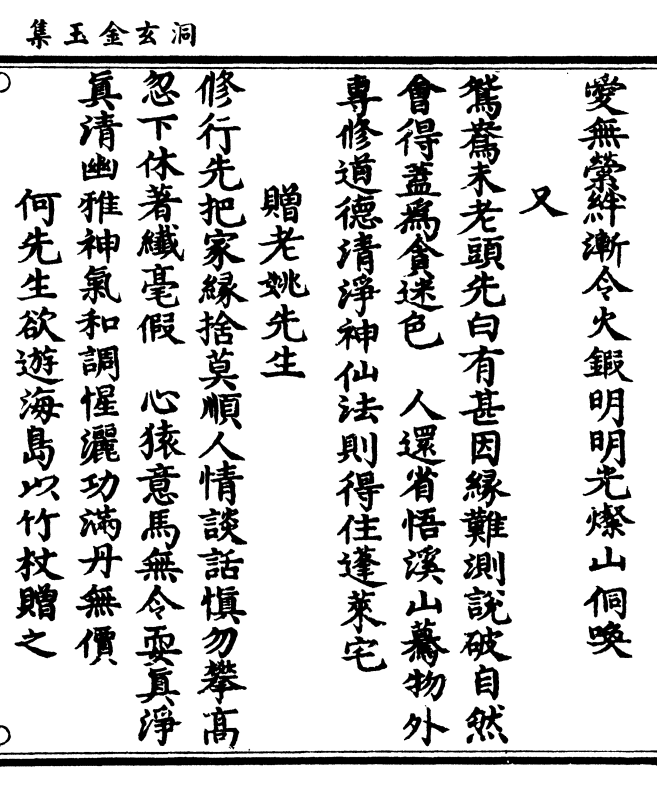 洞玄金玉集
愛無縈絆漸令火鍜明明光燦山侗喚
又
鴛鴦未老頭先白有甚因緣難測說破自然
會得蓋爲貪迷色　人還省悟溪山驀物外
專修道德清淨神仙法則得住蓬萊宅
贈老姚先生
修行先把家緣捨莫順人情談話愼勿攀高
忽下休著纖毫假　心猿意馬無令耍眞淨
眞清幽雅神氣和調惺灑功滿丹無價
何先生欲遊海島以竹杖贈之